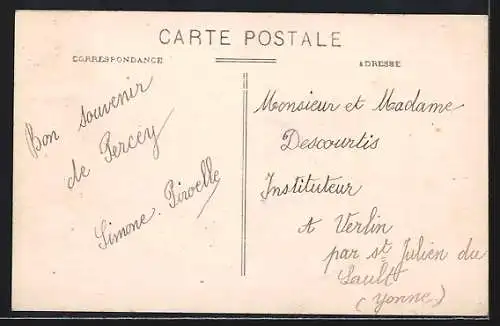 CARTE POSTALE
CORRESPONDANCE
ADRESSE
Bon souvenir
de Percey
Simone Pirolle
Monsieur et Madame
Descourtis
Instituteur
A Verlin
par st Julien du
Sault
(Yonne)